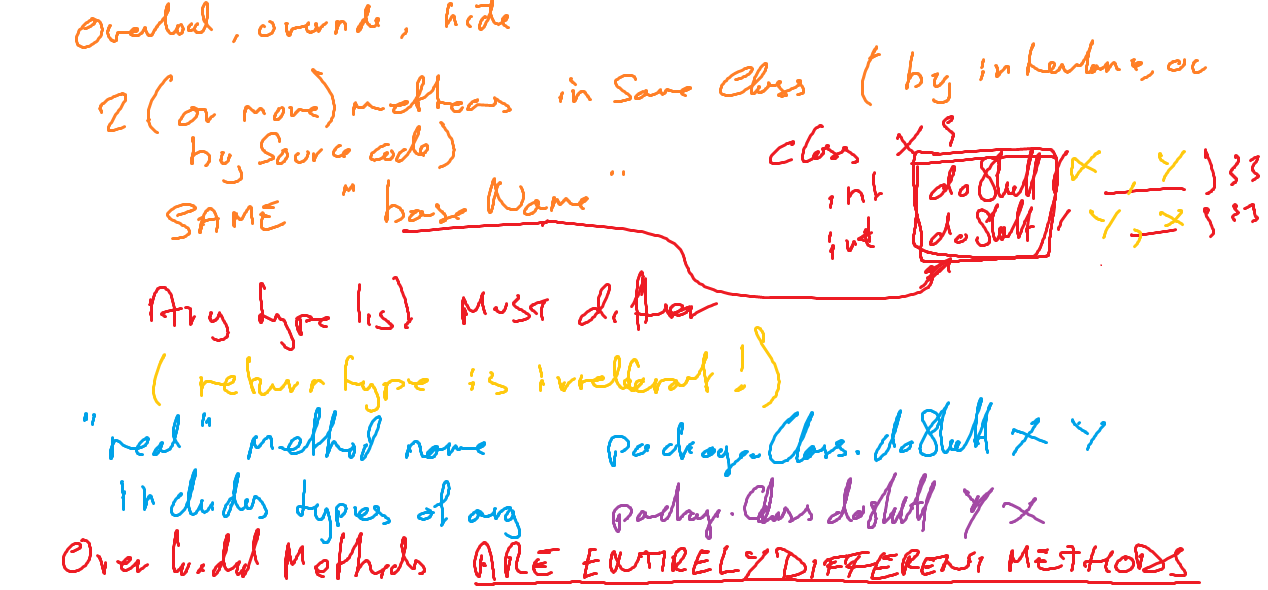 Overload, override, hide
2 (or more) methods in Same Class (by inheritance, or
by Source code)
SAME "base Name"
class X {
int doStuff ( X , Y ) { }}
int doStuff ( Y , X ) { }}
Arg type list MUST differ
(return type is irrelevant!)
"real" method name package.Class.doStuff X Y
includes types of arg package.Class doStuff Y X
Overloaded Methods ARE ENTIRELY DIFFERENT METHODS